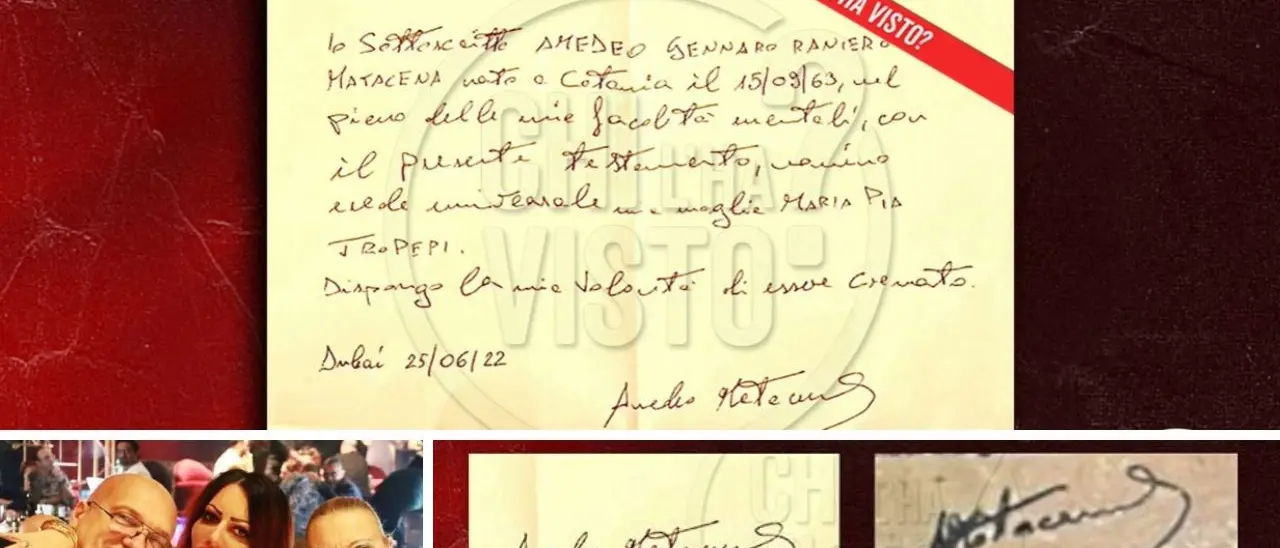 HA VISTO?
Io Sottoscritto AMEDEO GENNARO RANIERO
MATACENA nato a Catania il 15/09/63, nel
pieno delle mie facoltà mentali, con
il presente testamento, nomino
erede universale mia moglie MARIA PIA
TROPEPI.
Dispongo la mia volontà di essere cremato.
Dubai 25/06/22
Amedeo Matacena
CHI L'HA
VISTO?
Amedeo Matacena
CHI L'HA
Matacena